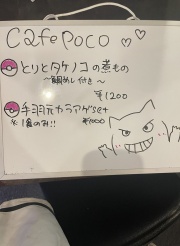 Cafe Poco ♡♡
とりとタケノコの煮もの
〜鯛めし付き〜
¥1200
手羽元カラアゲset
¥1000
※1食のみ!!